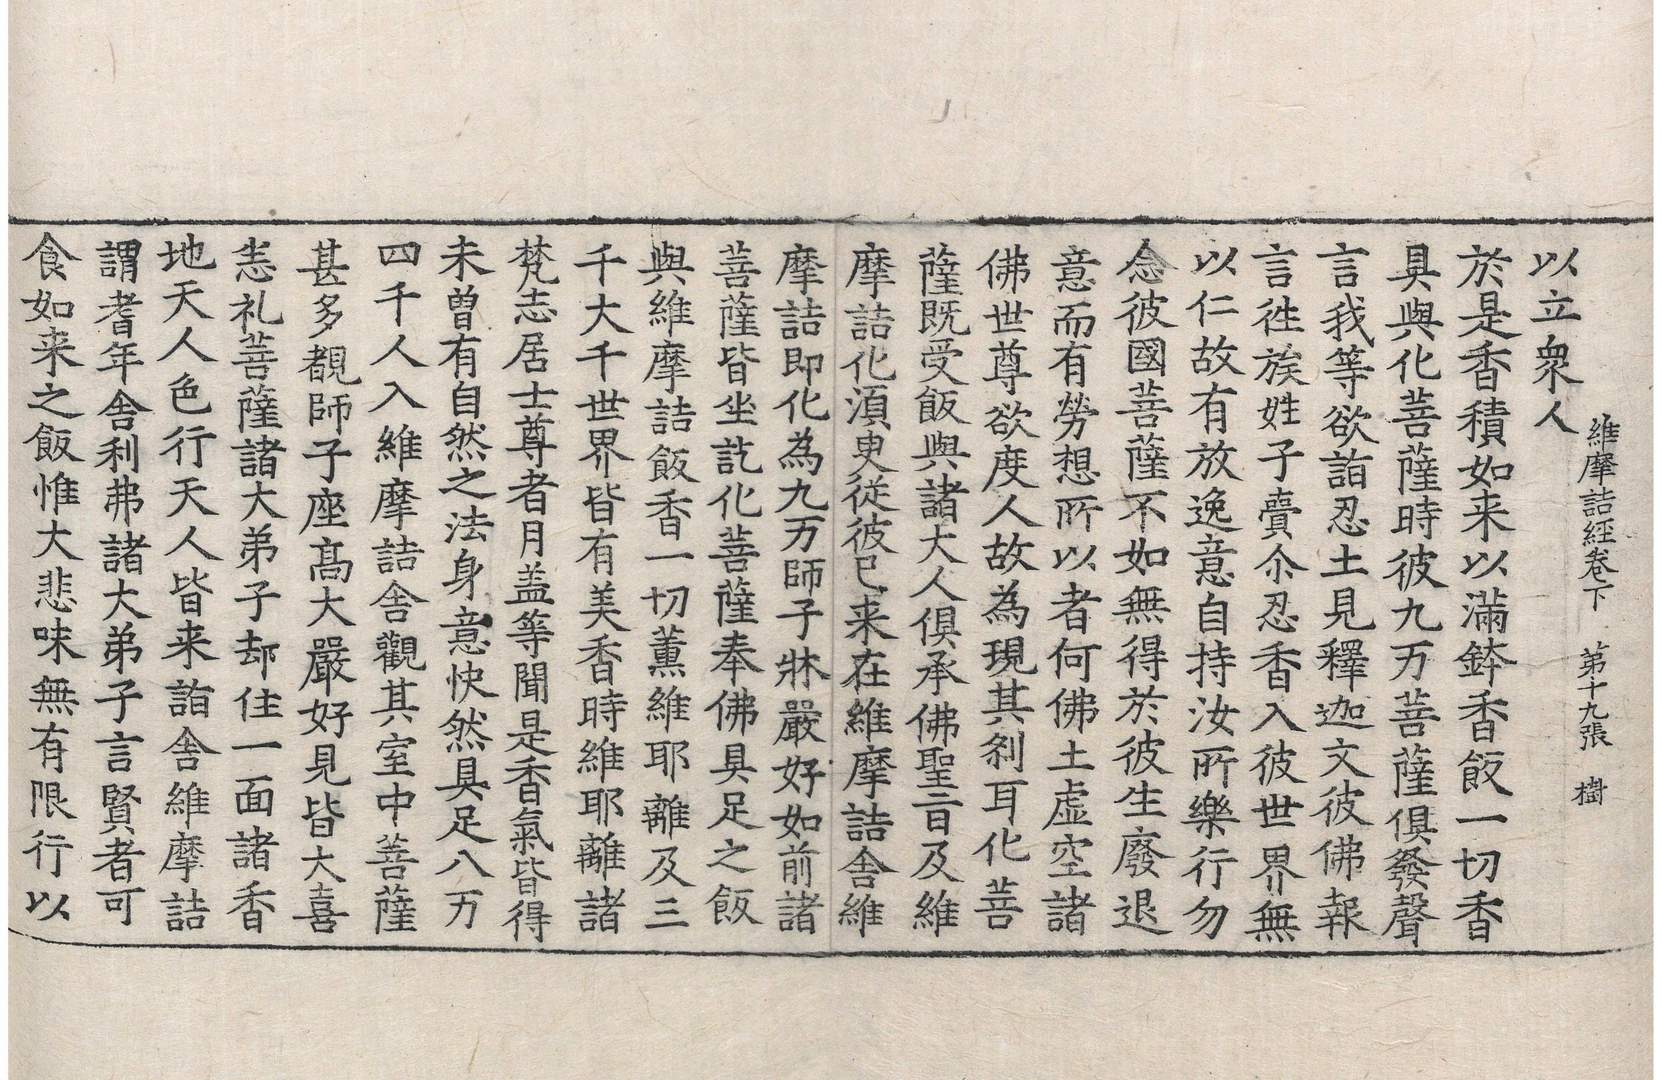 維摩詰經卷下　第十九張　樹
以立衆人
於是香積如来以滿鉢香飯一切香
具與化菩薩時彼九万菩薩俱發聲
言我等欲詣忍土見釋迦文彼佛報
言徃族姓子賷尒忍香入彼世界無
以仁故有放逸意自持汝所樂行勿
念彼國菩薩不如無得於彼生廢退
意而有勞想所以者何佛土虚空諸
佛世尊欲度人故為現其刹耳化菩
薩既受飯與諸大人俱承佛聖旨及維
摩詰化湏臾從彼已来在維摩詰舎維
摩詰即化為九万師子牀嚴好如前諸
菩薩皆坐訖化菩薩奉佛具足之飯
與維摩詰飯香一切薫維耶離及三
千大千世界皆有美香時維耶離諸
梵志居士尊者月盖等聞是香氣皆得
未曽有自然之法身意快然具足八万
四千人入維摩詰舎觀其室中菩薩
甚多覩師子座髙大嚴好見皆大喜
恚礼菩薩諸大弟子却住一面諸香
地天人色行天人皆来詣舎維摩詰
謂耆年舎利弗諸大弟子言賢者可
食如来之飯惟大悲味無有限行以